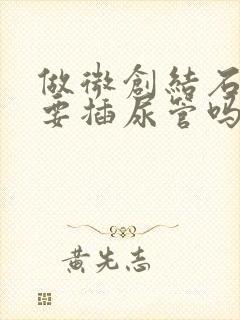 做微創結石
要插尿管吗
黄先志